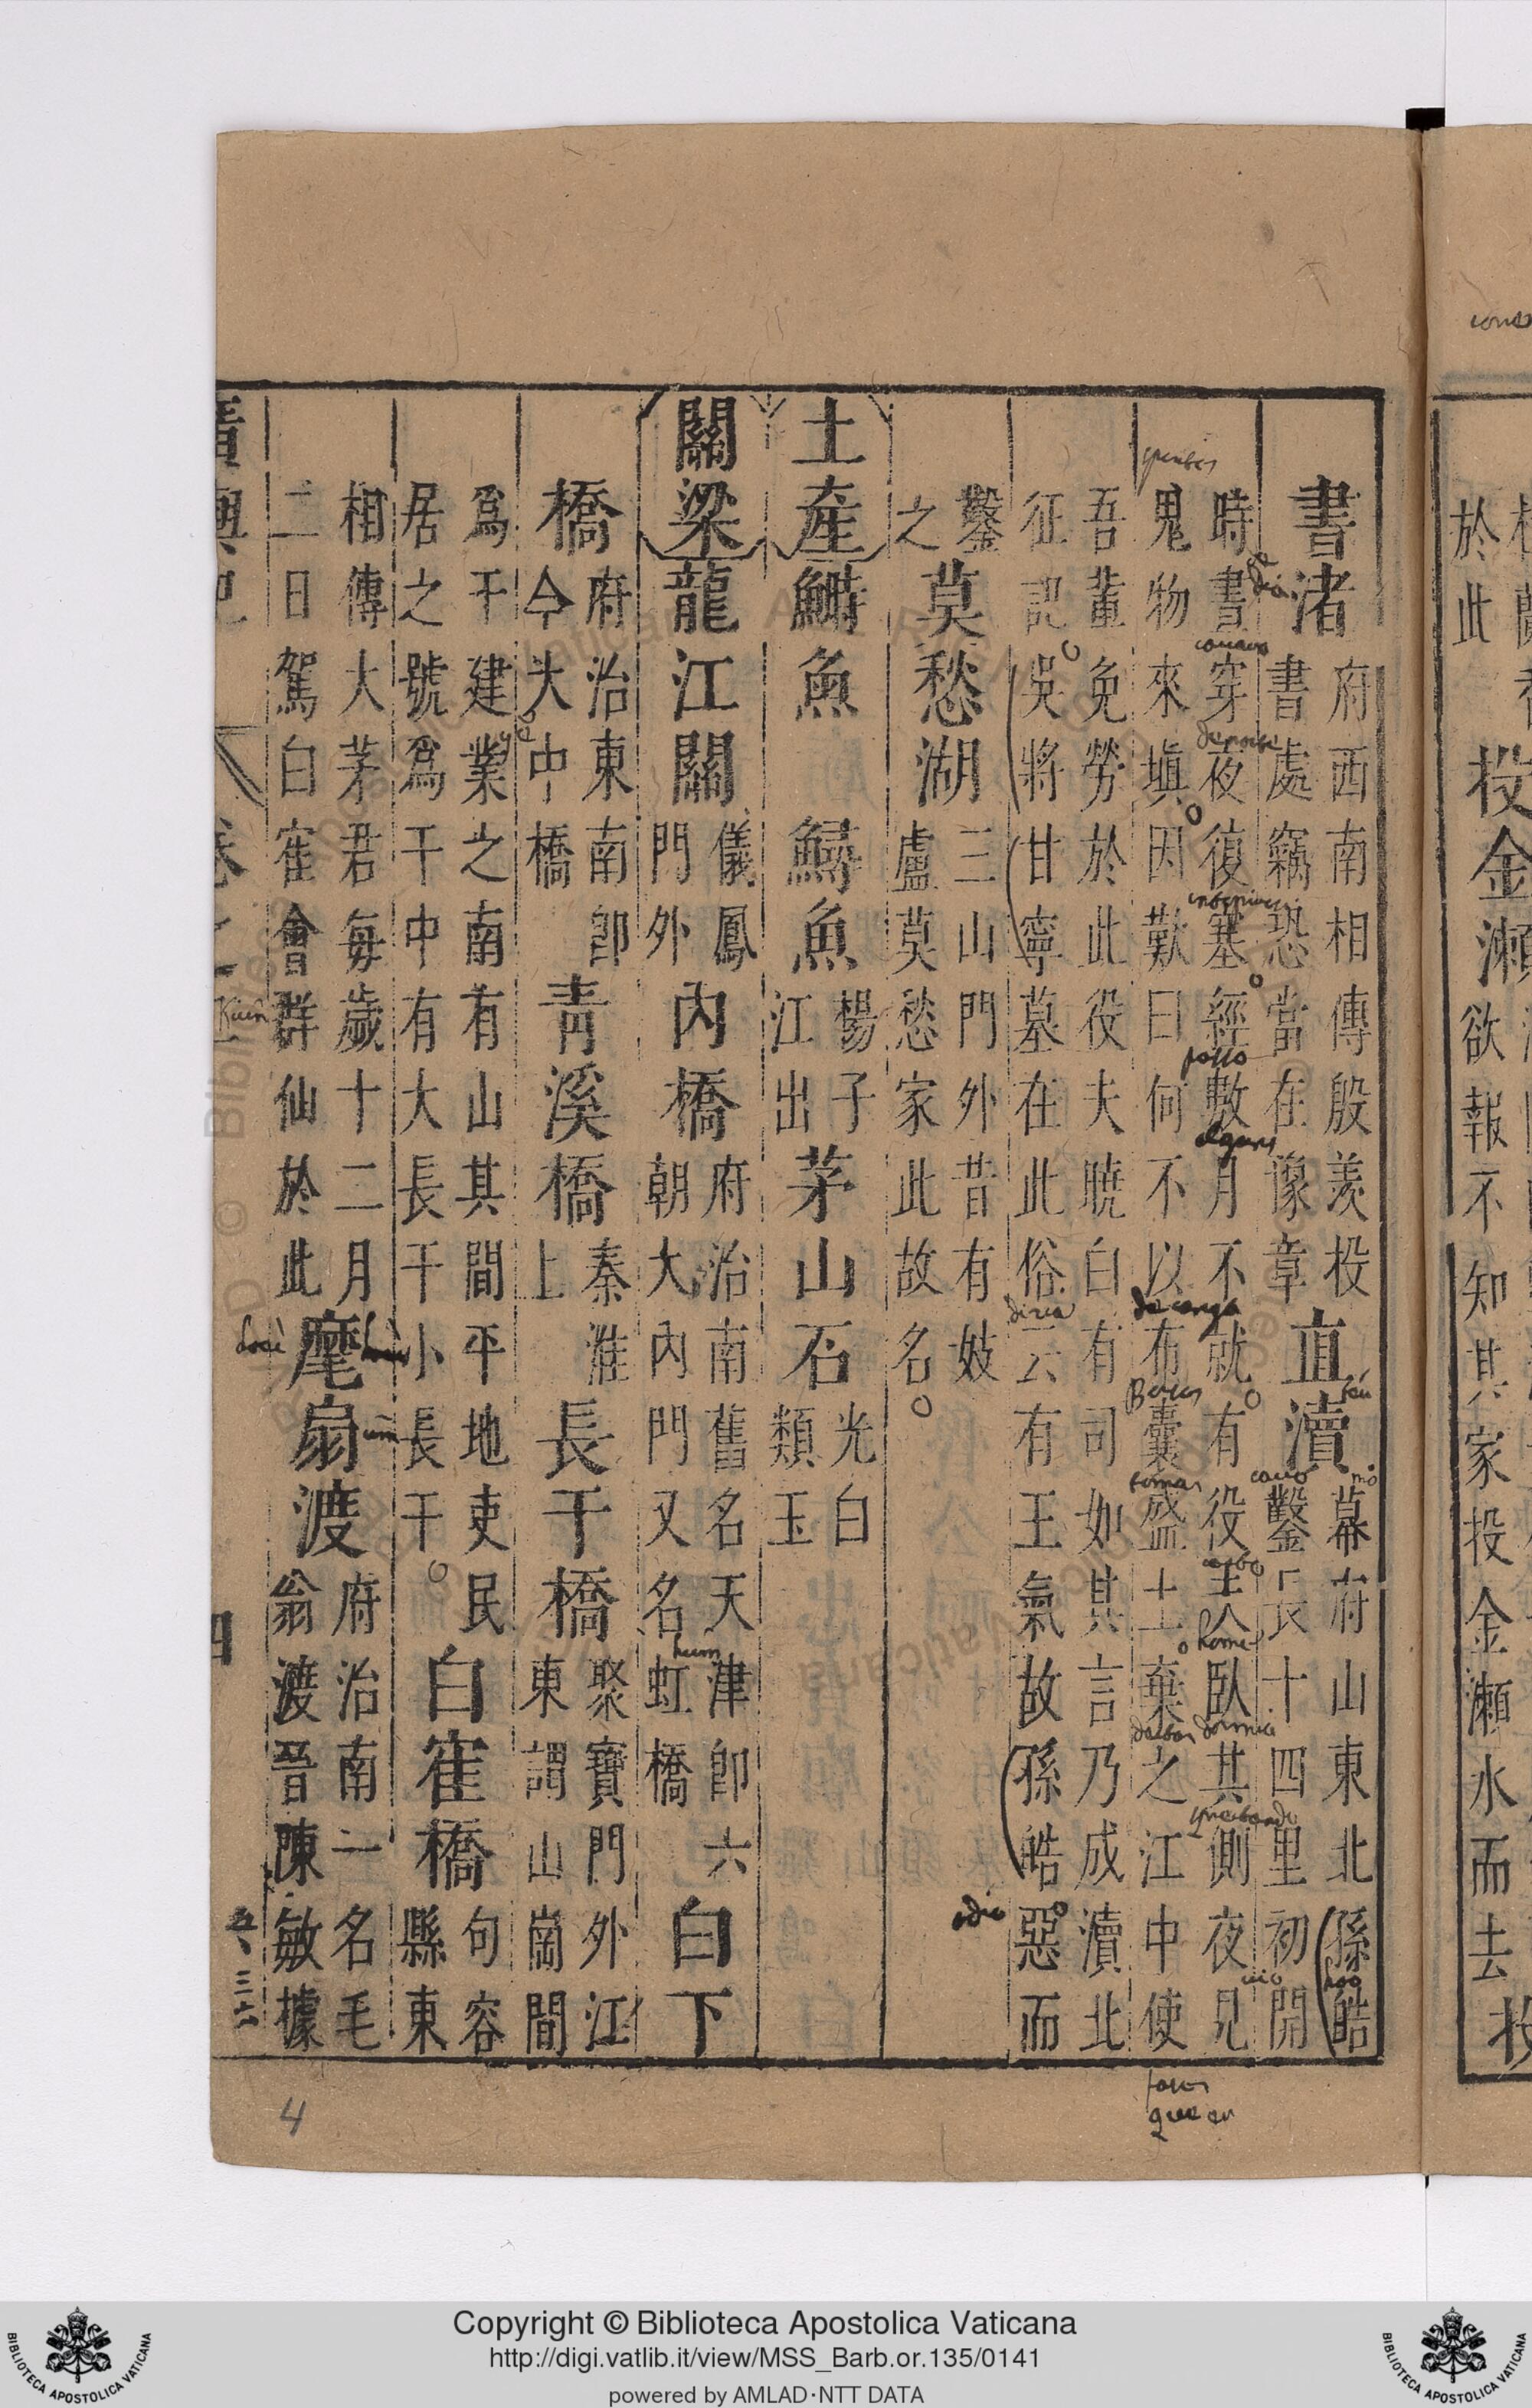 於此
投金
欲報不知其家投金瀨水而去
書渚府西南相傳殷羨投書處竊恐當在豫章直瀆幕府山東北孫皓鑿長十四里初開
時晝穿夜復塞經數月不就有役夫臥其側夜見鬼物來塡因歎曰何不以布囊盛土棄之江中使
吾輩免勞於此役夫曉白有司如其言乃成瀆北征記吳將甘寧墓在此俗云有王氣故孫皓惡而
鑿之莫愁湖三山門外昔有妓盧莫愁家此故名
土產鰣魚鱘魚楊子江出茅山石光白類玉
關梁龍江關儀鳳門外內橋府治南舊名天津卽六朝大內門又名虹橋白下
橋府治東南卽今大中橋靑溪橋秦淮上長干橋聚寶門外江東謂山崗間
爲干建業之南有山其間平地吏民居之號爲干中有大長干小長干白隺橋句容縣東
相傳大茅君每歲十二月二日駕白隺會群仙於此麾扇渡府治南一名毛翁渡晉陳敏據
4
Copyright © Biblioteca Apostolica Vaticana
http://digi.vatlib.it/view/MSS_Barb.or.135/0141
powered by AMLAD·NTT DATA
BIBLIOTECA APOSTOLICA VATICANA
BIBLIOTECA APOSTOLICA VATICANA